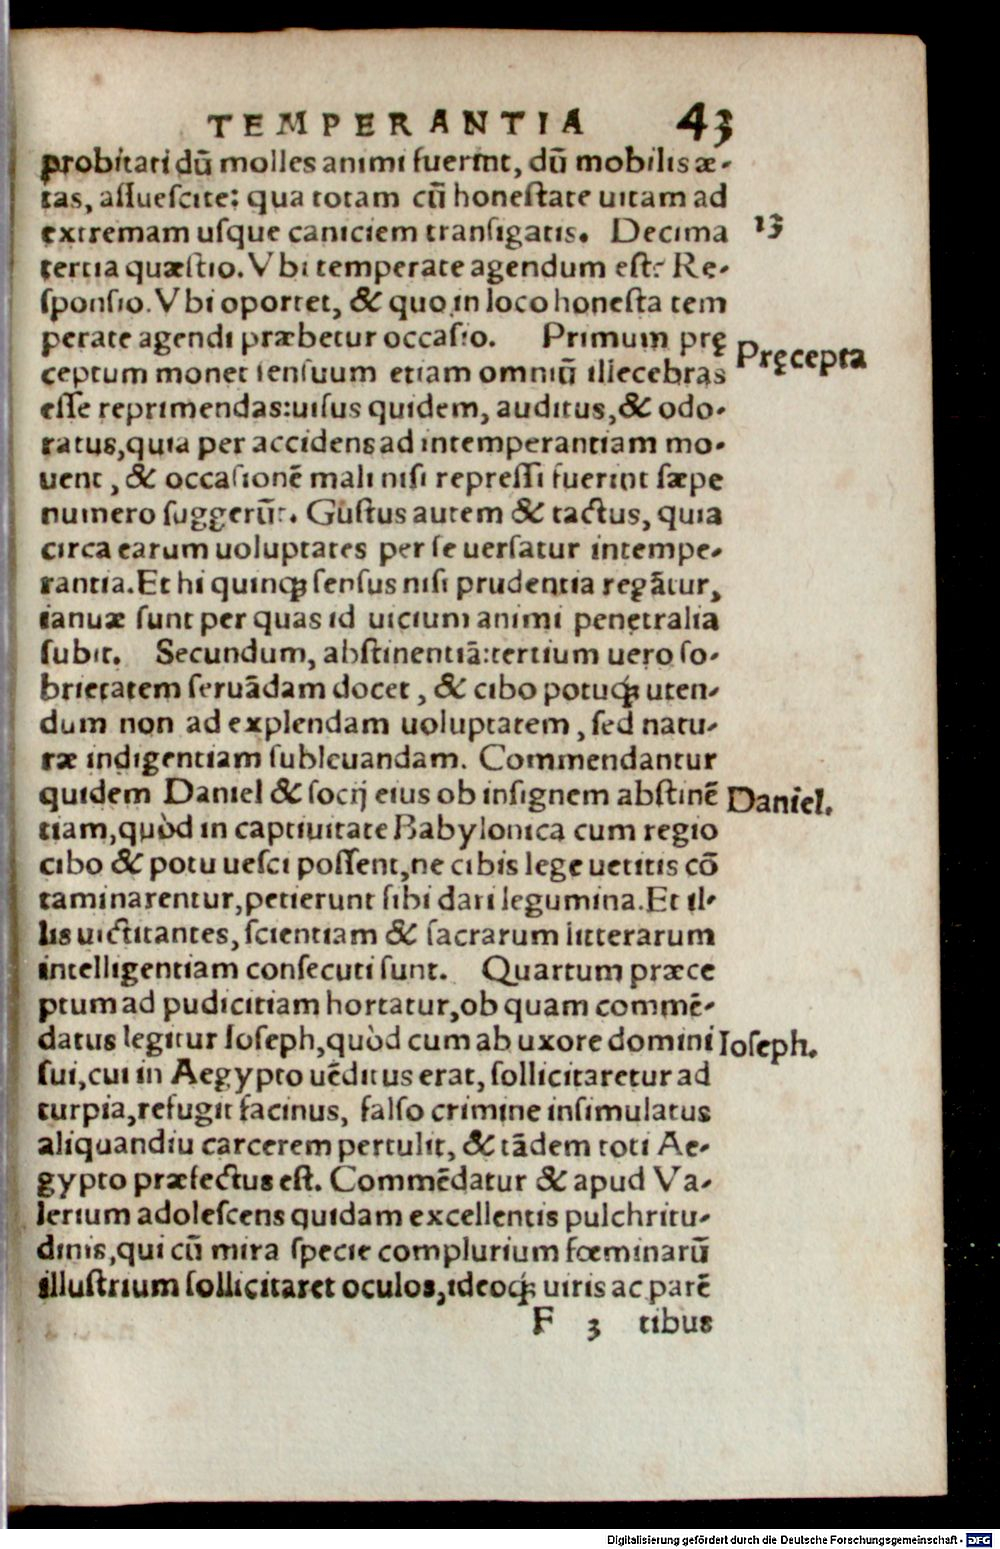 TEMPERANTIA 43
probitati dū molles animi fuerint, dū mobilis æ-
tas, assuescite: qua totam cū honestate uitam ad
extremam usque caniciem transigatis. Decima 13
tertia quæstio. Vbi temperate agendum est? Re-
sponsio. Vbi oportet, & quo in loco honesta tem
perate agendi præbetur occasio. Primum prę Pręcepta
ceptum monet sensuum etiam omniū illecebras
esse reprimendas: uisus quidem, auditus, & odo-
ratus, quia per accidens ad intemperantiam mo-
uent, & occasionē mali nisi repressi fuerint sæpe
numero suggerūt. Gustus autem & tactus, quia
circa earum uoluptates per se uersatur intempe-
rantia. Et hi quinq; sensus nisi prudentia regātur,
ianuæ sunt per quas id uicium animi penetralia
subit. Secundum, abstinentiā: tertium uero so-
brietatem seruādam docet, & cibo potuq; uten-
dum non ad explendam uoluptatem, sed natu-
ræ indigentiam subleuandam. Commendantur
quidem Daniel & socij eius ob insignem abstinē Daniel.
tiam, quòd in captiuitate Babylonica cum regio
cibo & potu uesci possent, ne cibis lege uetitis cō
taminarentur, petierunt sibi dari legumina. Et il-
lis uictitantes, scientiam & sacrarum litterarum
intelligentiam consecuti sunt. Quartum præce
ptum ad pudicitiam hortatur, ob quam commē-
datus legitur Ioseph, quòd cum ab uxore domini Ioseph.
sui, cui in Aegypto uēditus erat, sollicitaretur ad
turpia, refugit facinus, falso crimine insimulatus
aliquandiu carcerem pertulit, & tādem toti Ae-
gypto præfectus est. Commēdatur & apud Va-
lerium adolescens quidam excellentis pulchritu-
dinis, qui cū mira specie complurium fœminarū
illustrium sollicitaret oculos, ideoq; uiris ac parē
F 3 tibus
Digitalisierung gefördert durch die Deutsche Forschungsgemeinschaft - DFG